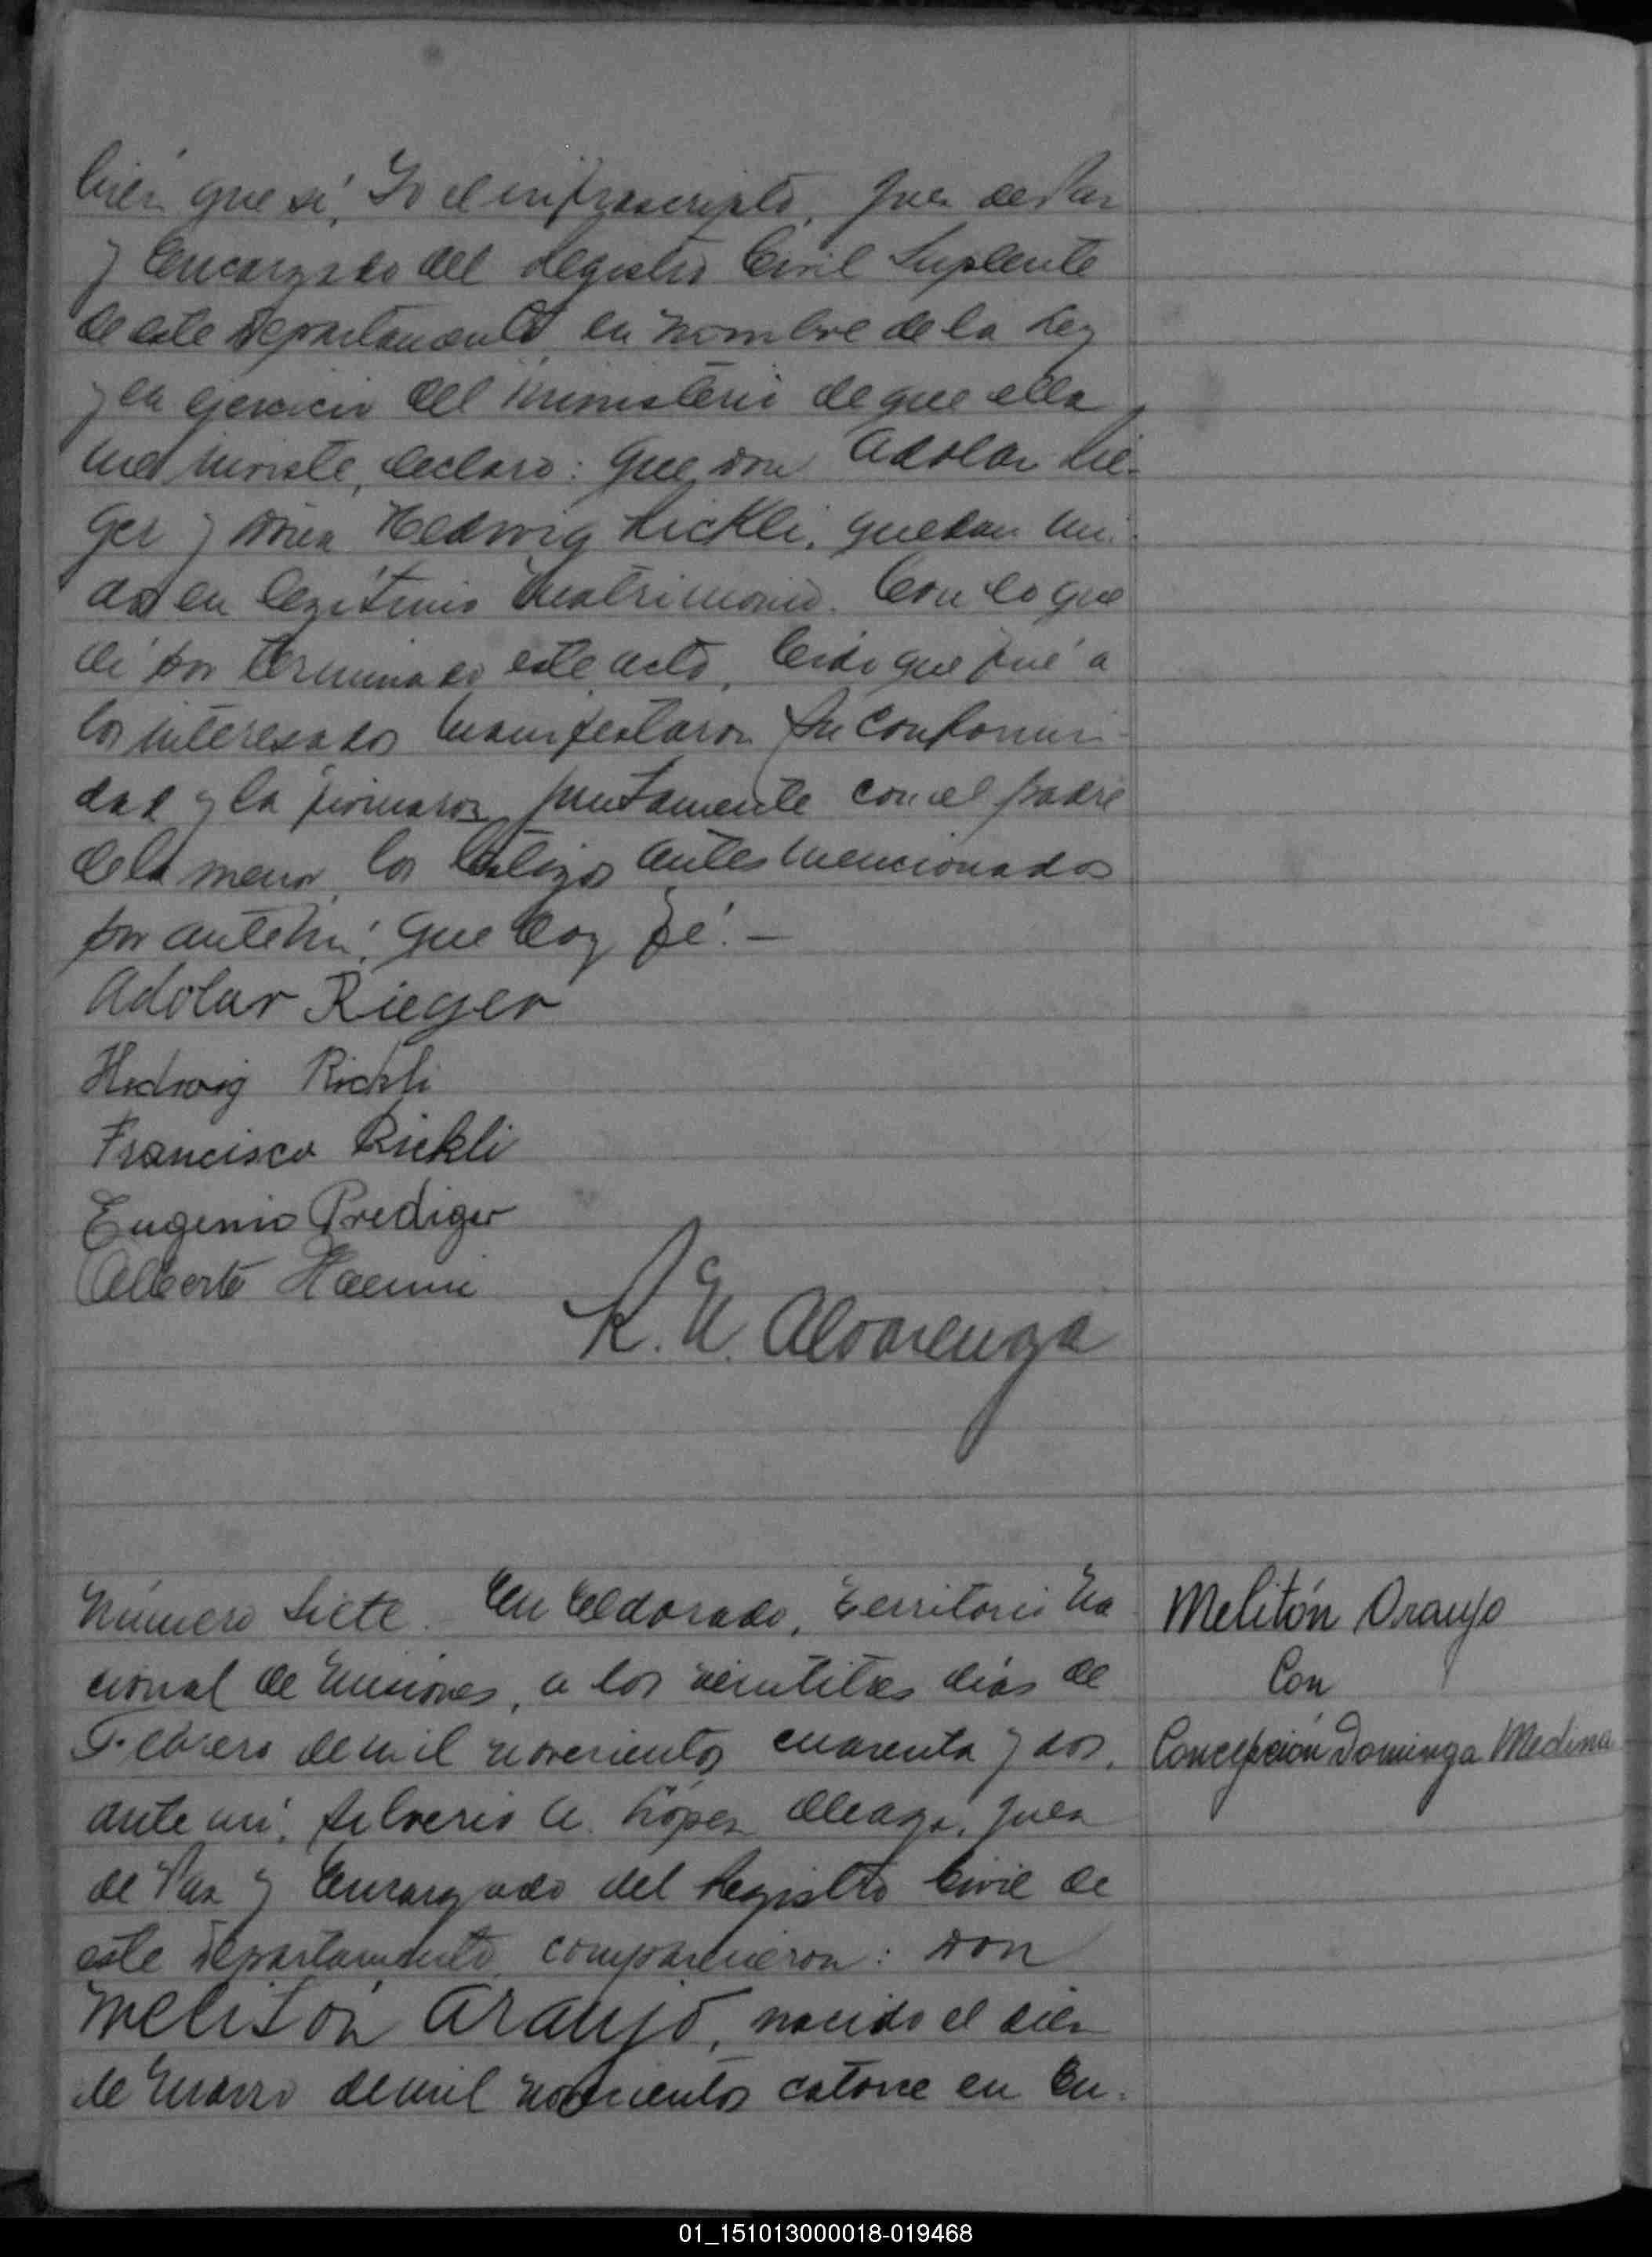 bién que sí, Yo el infrascripto, Juez de Paz
y Encargado del Registro Civil Suplente
de este Departamento, en nombre de la Ley
y en ejercicio del ministerio de que ella
me inviste, declaro: que don Adolar Rie-
ger y doña Hedwig Rickli, quedan uni-
dos en legítimo matrimonio. Con lo que
dí por terminado este acto, leido que fué a
los interesados manifestaron su conformi-
dad y la firmaron juntamente con el padre
de la menor, los testigos antes mencionados
por ante mí, que doy fé.-
Adolar Rieger
Hedwig Rickli
Francisco Rickli
Eugenio Prediger
Alberto Haenni
R. E. Alvarenga
Número Siete. En Eldorado, Territorio Na
cional de Misiones, a los veintitres días de
Febrero de mil novecientos cuarenta y dos,
ante mí, Silverio A. López Aleazá, Juez
de Paz y Encargado del Registro Civil de
este Departamento, comparecieron: Don
Melitón Araujo, nacido el diez
de Marzo de mil novecientos catorce en En-
Melitón Araujo
Con
Concepción Dominga Medina
01_151013000018-019468